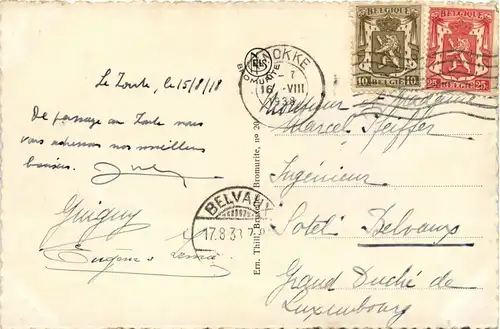 Le Zoute, le 15/8/38
De passage au Zoute nous
vous adressons nos meilleurs
baisers.
Guiguy
Eugène
KNOKKE
16 -7 VIII
1938
BELGIQUE BELGIE
10 10
BELGIQUE BELGIE
25 25
BELVAUX
17.8.38
Ern. Thill, Bruxelles
Bromurite, no 20
Monsieur et Madame
Marcel Pfeiffer
Ingénieur
Sotel Belvaux
Grand Duché de
Luxembourg